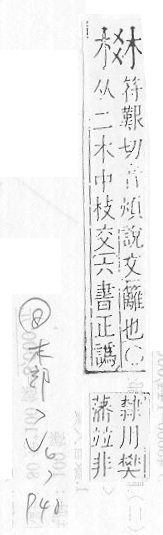 棥
符艱切音煩說文籬也○
从二木中枝交六書正譌
隸川樊
藩竝非
⑧木部 V6, P40